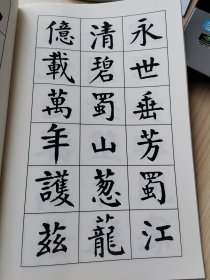 永世垂芳蜀江
清碧蜀山葱蘢
億載萬年護茲